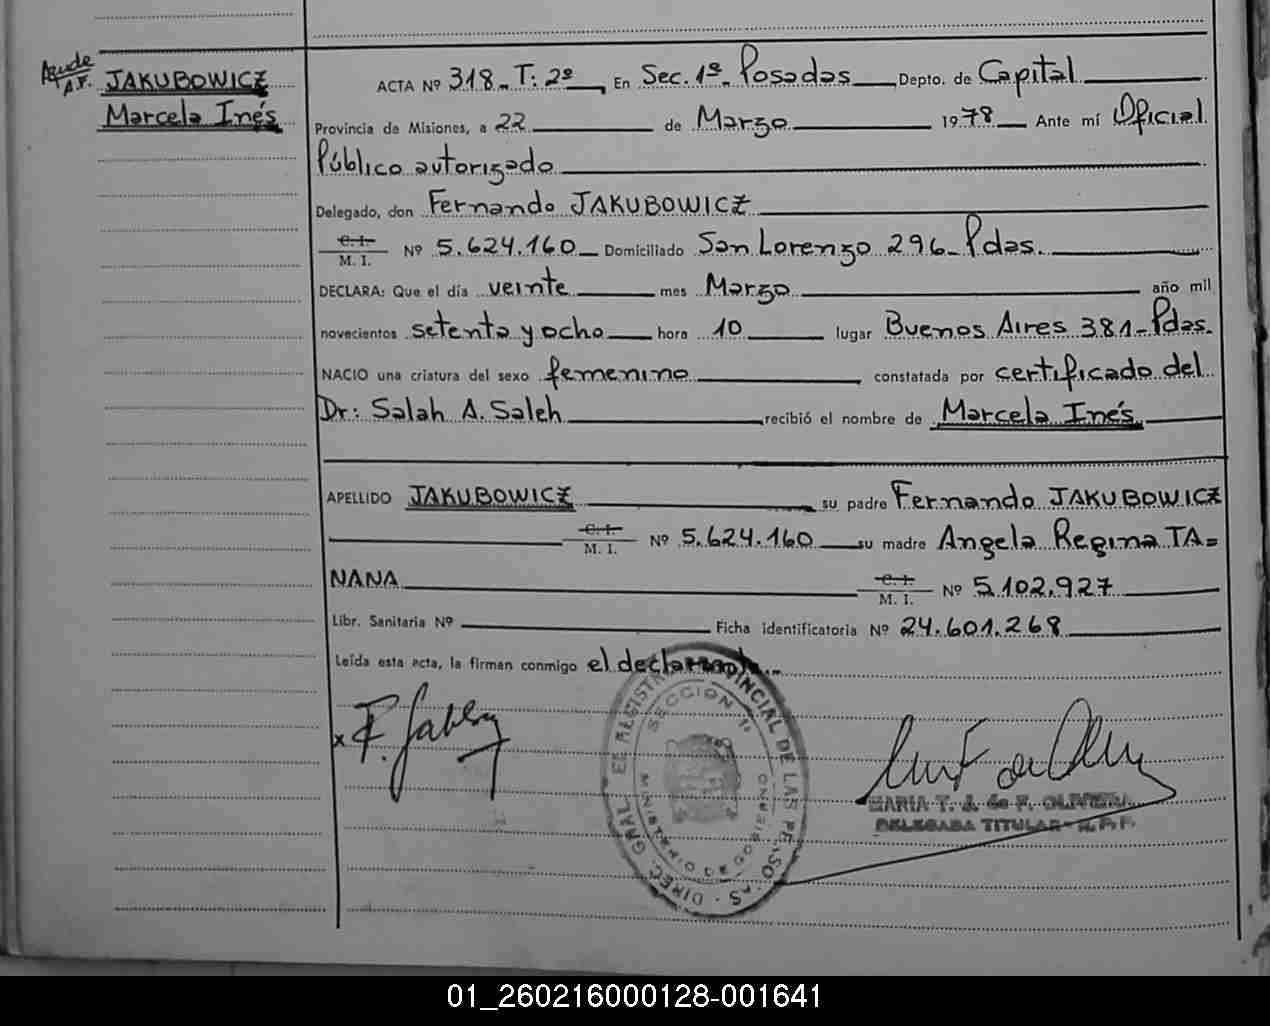 JAKUBOWICZ
Marcela Inés
ACTA Nº 318 - T: 2º En Sec. 1º - Posadas Depto. de Capital
Provincia de Misiones, a 22 de Marzo 1978 Ante mí Oficial
Público autorizado
Delegado, don Fernando JAKUBOWICZ
C. I.
M. I. Nº 5.624.160 Domiciliado San Lorenzo 296 - Pdas.
DECLARA: Que el día veinte mes Marzo año mil
novecientos setenta y ocho hora 10 lugar Buenos Aires 381 - Pdas.
NACIO una criatura del sexo femenino constatada por certificado del
Dr: Salah A. Saleh recibió el nombre de Marcela Inés
APELLIDO JAKUBOWICZ su padre Fernando JAKUBOWICZ
C. I.
M. I. Nº 5.624.160 su madre Angela Regina TA=
NANA C. I.
M. I. Nº 5.102.927
Libr. Sanitaria Nº Ficha identificatoria Nº 24.601.268
Leída esta acta, la firman conmigo el declarante.-
DIREC. GRAL. DE REGISTRO PROVINCIAL DE LAS PERSONAS
SECCION 1ª
MINISTERIO DE GOBIERNO
MARIA T. J. de F. OLIVEIRA
DELEGADA TITULAR - R. P. P.
01_260216000128-001641